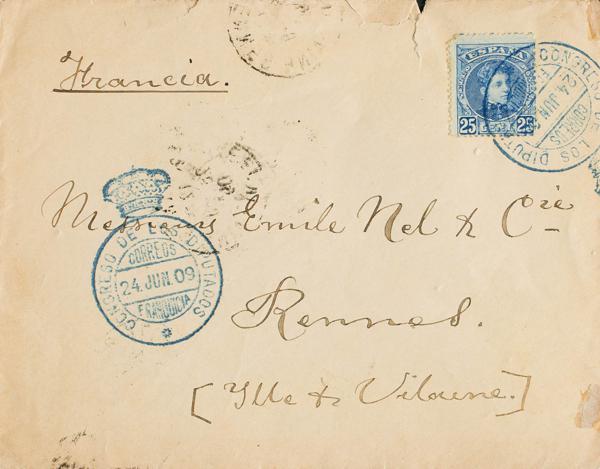 Francia.
ESPAÑA
25 CENT. 25
CONGRESO DE LOS DIPUT
24 JUN
CORREOS
Messieurs Emile Nel & Cie
CONGRESO DE LOS DIPUTADOS
CORREOS
24 JUN. 09
FRANQUICIA
Rennes.
[Ille & Vilaine.]